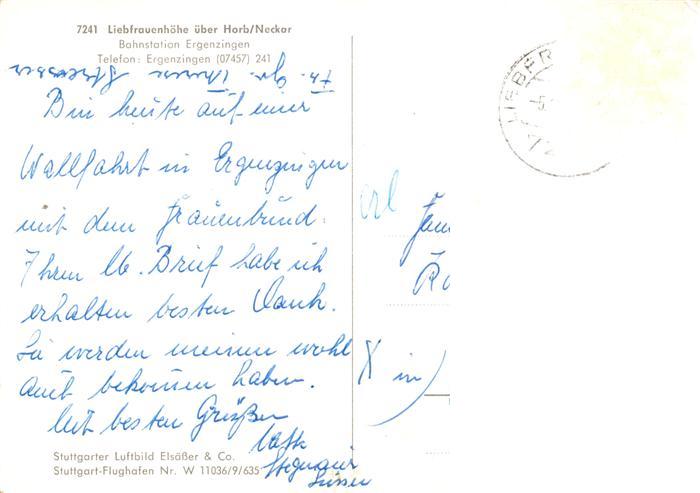 7241 Liebfrauenhöhe über Horb/Neckar
Bahnstation Ergenzingen
Telefon: Ergenzingen (07457) 241
Bin heute auf einer
Wallfahrt in Ergenzingen
mit dem Frauenbund.
Ihren lb. Brief habe ich
erhalten besten Dank.
Sie werden meinen wohl
auch bekommen haben.
Mit besten Grüßen
Stuttgarter Luftbild Elsäßer & Co.
Stuttgart-Flughafen Nr. W 11036/9/635
erl
Fam
X in)